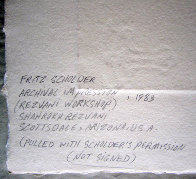 FRITZ SCHOLDER
ARCHIVAL IMPRESSION, 1983
(REZVANI WORKSHOP)
SHAHROKH REZVANI
SCOTTSDALE, ARIZONA, U.S.A.
(PULLED WITH SCHOLDER'S PERMISSION
(NOT SIGNED)